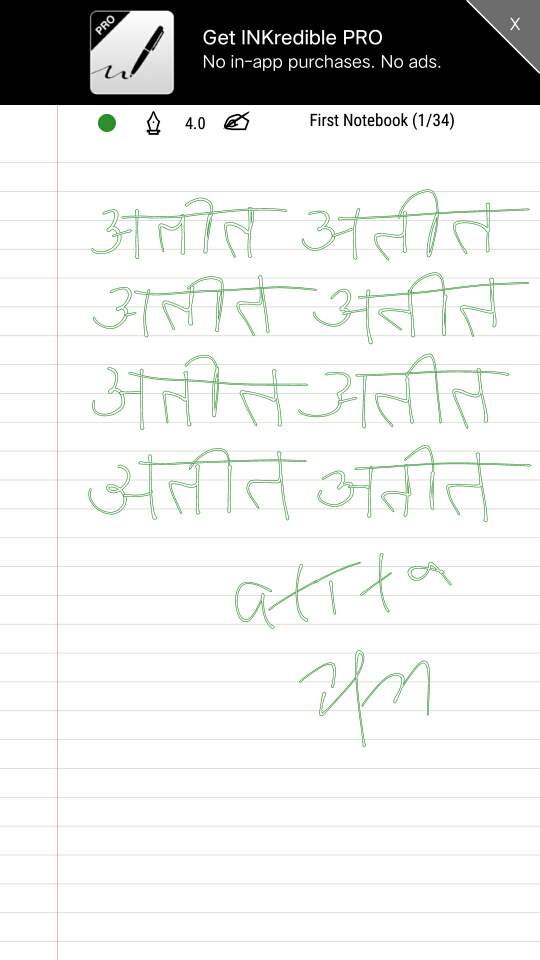 PRO
Get INKredible PRO
No in-app purchases. No ads.
X
4.0
First Notebook (1/34)
अतीत अतीत
अतीत अतीत
अतीत अतीत
अतीत अतीत